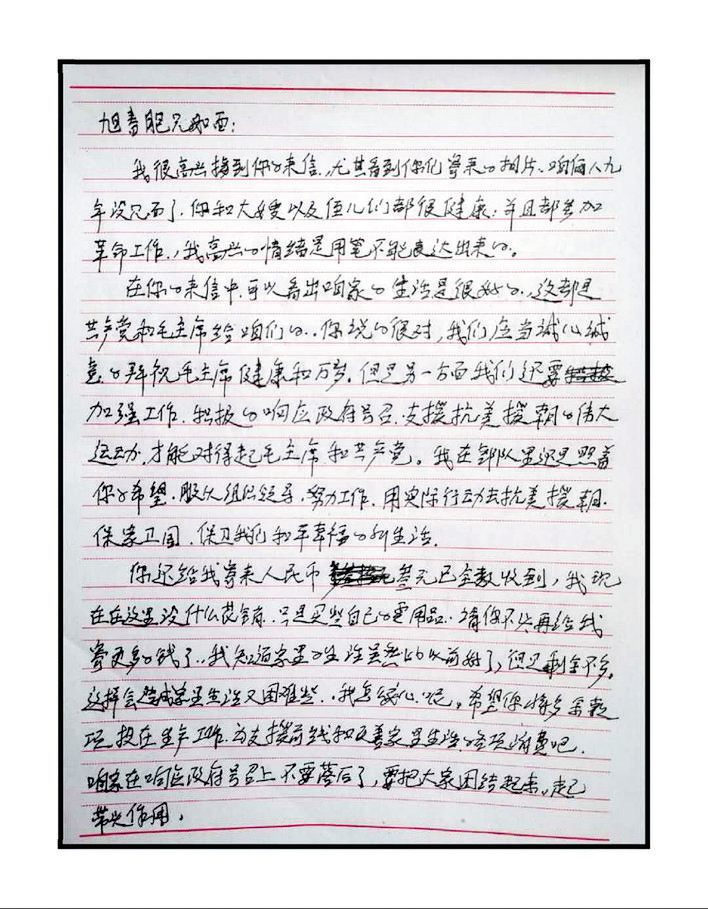 旭春胞兄如面：
我很高兴接到你的来信，尤其看到你们寄来的相片，咱俩人九
年没见面了，你和大嫂以及侄儿们都很健康，并且都参加
革命工作，我高兴的情绪是用笔不能表达出来的。
在你的来信中可以看出咱家的生活是很好的，这都是
共产党和毛主席给咱们的，你说的很对，我们应当诚心诚
意的拜祝毛主席健康和万岁，但是另一方面我们还要
加强工作，积极的响应政府号召，支援抗美援朝的伟大
运动，才能对得起毛主席和共产党。我在部队里还是照着
你的希望，服从组织领导，努力工作，用实际行动去抗美援朝，
保家卫国，保卫我们和平幸福的新生活。
你还给我寄来人民币叁元已全数收到，我现
在在这里没什么花销，只是买些自己的零用品，请你不必再给我
寄更多的钱了，我知道家里的生活虽然比以前好了，但剩余不多，
这样会造成家里生活又困难些，我怎忍心呢，希望你将多余款
项投在生产工作，为支援前线和改善家里生活的各项消费吧。
咱家在响应政府号召上不要落后了，要把大家团结起来，起
带头作用，